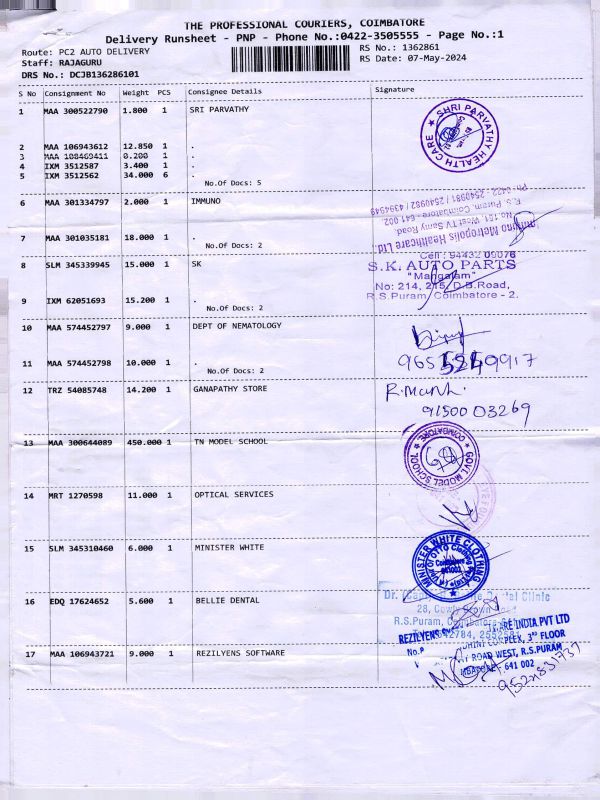 THE PROFESSIONAL COURIERS, COIMBATORE
Delivery Runsheet - PNP - Phone No.:0422-3505555 - Page No.:1
Route: PC2 AUTO DELIVERY
RS No.: 1362861
Staff: RAJAGURU
RS Date: 07-May-2024
DRS No.: DCJB136286101
S No Consignment No Weight PCS Consignee Details Signature
1 MAA 300522790 1.800 1 SRI PARVATHY
SHRI PARVATHY HEALTH CARE
2 MAA 106943612 12.850 1 .
3 MAA 108469411 0.200 1 .
4 IXM 3512587 3.400 1 .
5 IXM 3512562 34.000 6 .
No.Of Docs: 5
6 MAA 301334797 2.000 1 IMMUNO
Metropolis Healthcare Ltd.
No.151, West TV Samy Road,
R.S. Puram, Coimbatore - 641 002.
Ph: 0422 - 2540981 / 2540982 / 4394949
7 MAA 301035181 18.000 1 .
No.Of Docs: 2
8 SLM 345339945 15.000 1 SK
Cell : 94432 09076
S.K. AUTO PARTS
"Mangalam"
No: 214, 215, D.B.Road,
R.S.Puram, Coimbatore - 2.
9 IXM 62051693 15.200 1 .
No.Of Docs: 2
10 MAA 574452797 9.000 1 DEPT OF NEMATOLOGY
11 MAA 574452798 10.000 1 .
No.Of Docs: 2
12 TRZ 54085748 14.200 1 GANAPATHY STORE
91500 03269
13 MAA 300644089 450.000 1 TN MODEL SCHOOL
GOVT MODEL SCHOOL
COIMBATORE
14 MRT 1270598 11.000 1 OPTICAL SERVICES
15 SLM 345310460 6.000 1 MINISTER WHITE
MINISTER WHITE CLOTHING
Coimbatore
641002
16 EDQ 17624652 5.600 1 BELLIE DENTAL
Clinic
28, Cowly Brown
R.S.Puram,
REZILYENS
INDIA PVT LTD
COMPLEX, 3rd FLOOR
ROAD WEST, R.S.PURAM
641 002
17 MAA 106943721 9.000 1 REZILYENS SOFTWARE